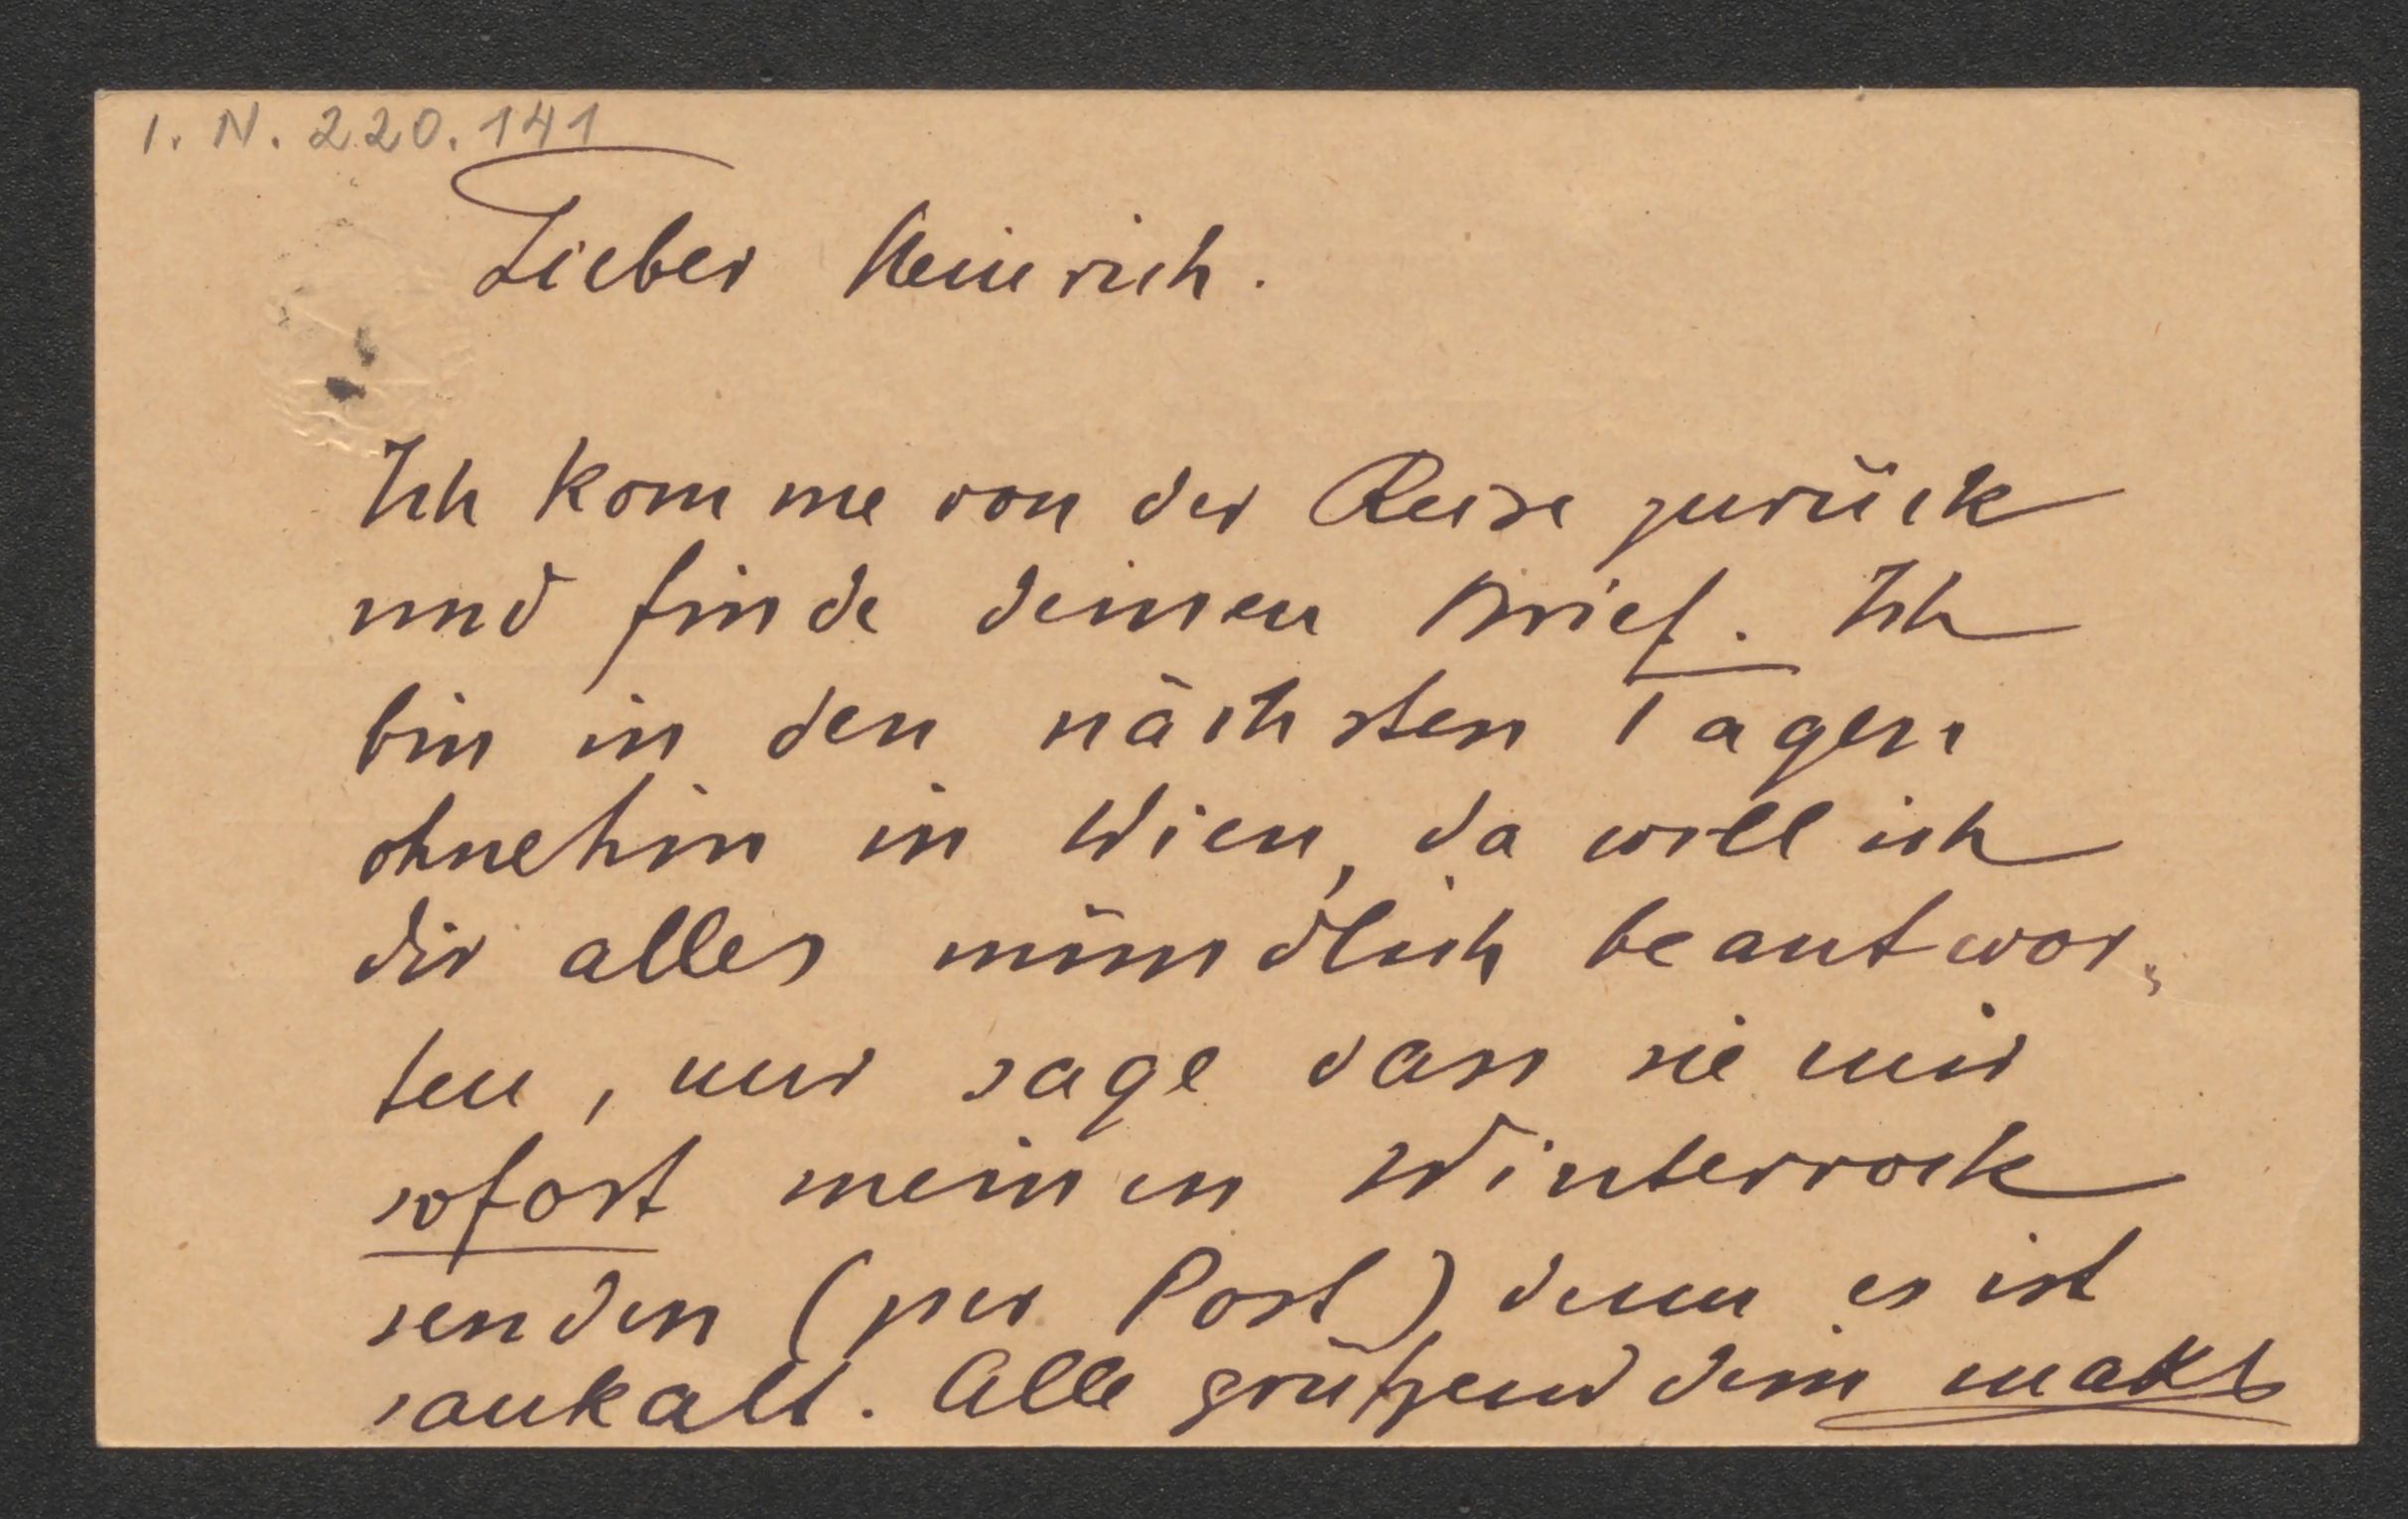 I. N. 220.141
Lieber Heinrich.
Ich komme von der Reise zurück
und finde deinen Brief. Ich
bin in den nächsten Tagen
ohnehin in Wien, da will ich
dir alles mündlich beantwor-
ten, nur sage dass sie mir
sofort meinen Winterrock
senden (per Post) denn es ist
saukalt. Alle grüßend dein